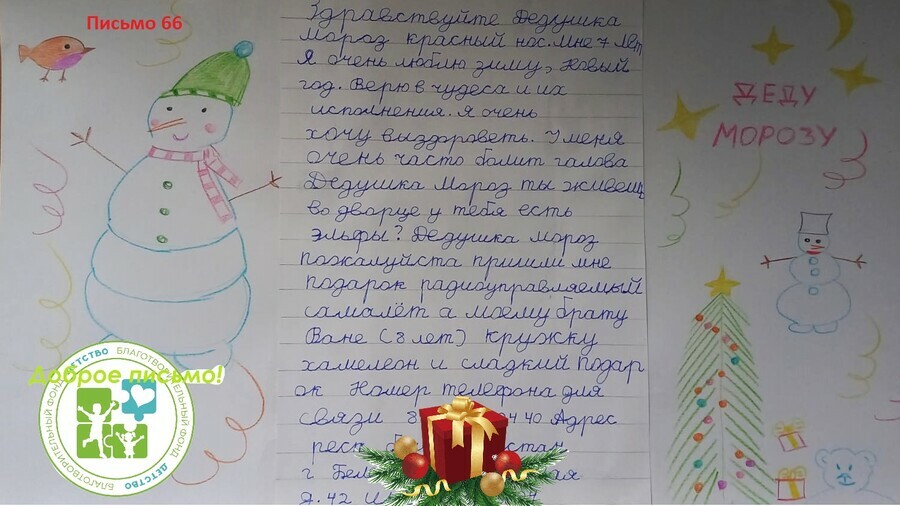 Письмо 66
Здравствуйте Дедушка
мороз красный нос. Мне 7 лет
Я очень люблю зиму, Новый
год. Верю в чудеса и их
исполнения. Я очень
хочу выздороветь. У меня
очень часто болит галова
Дедушка Мороз ты живешь
во дворце у тебя есть
эльфы? Дедушка мороз
пожалуйста пришли мне
подарок радиоуправляемый
самалёт а моему брату
Ване (8 лет) кружку
хамелеон и сладкий подар
ок Номер телефона для
связи 8 40 Адрес
респ.
г
д. 42
ДЕДУ
МОРОЗУ
Доброе письмо!
БЛАГОТВОРИТЕЛЬНЫЙ ФОНД ДЕТСТВО
БЛАГОТВОРИТЕЛЬНЫЙ ФОНД ДЕТСТВО